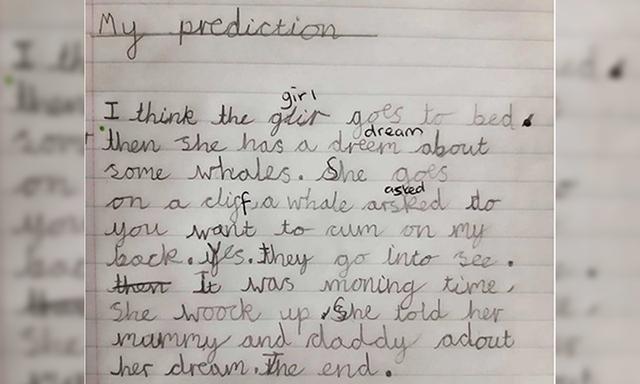 My prediction
girl
I think the glir goes to bed.
dream
then she has a dreem about
some whales. She goes
asked
on a cliff, a whale arsked do
you want to cum on my
back. Yes. They go into see.
then It was moning time,
she woock up. She told her
mummy and daddy adout
her dream. The end.